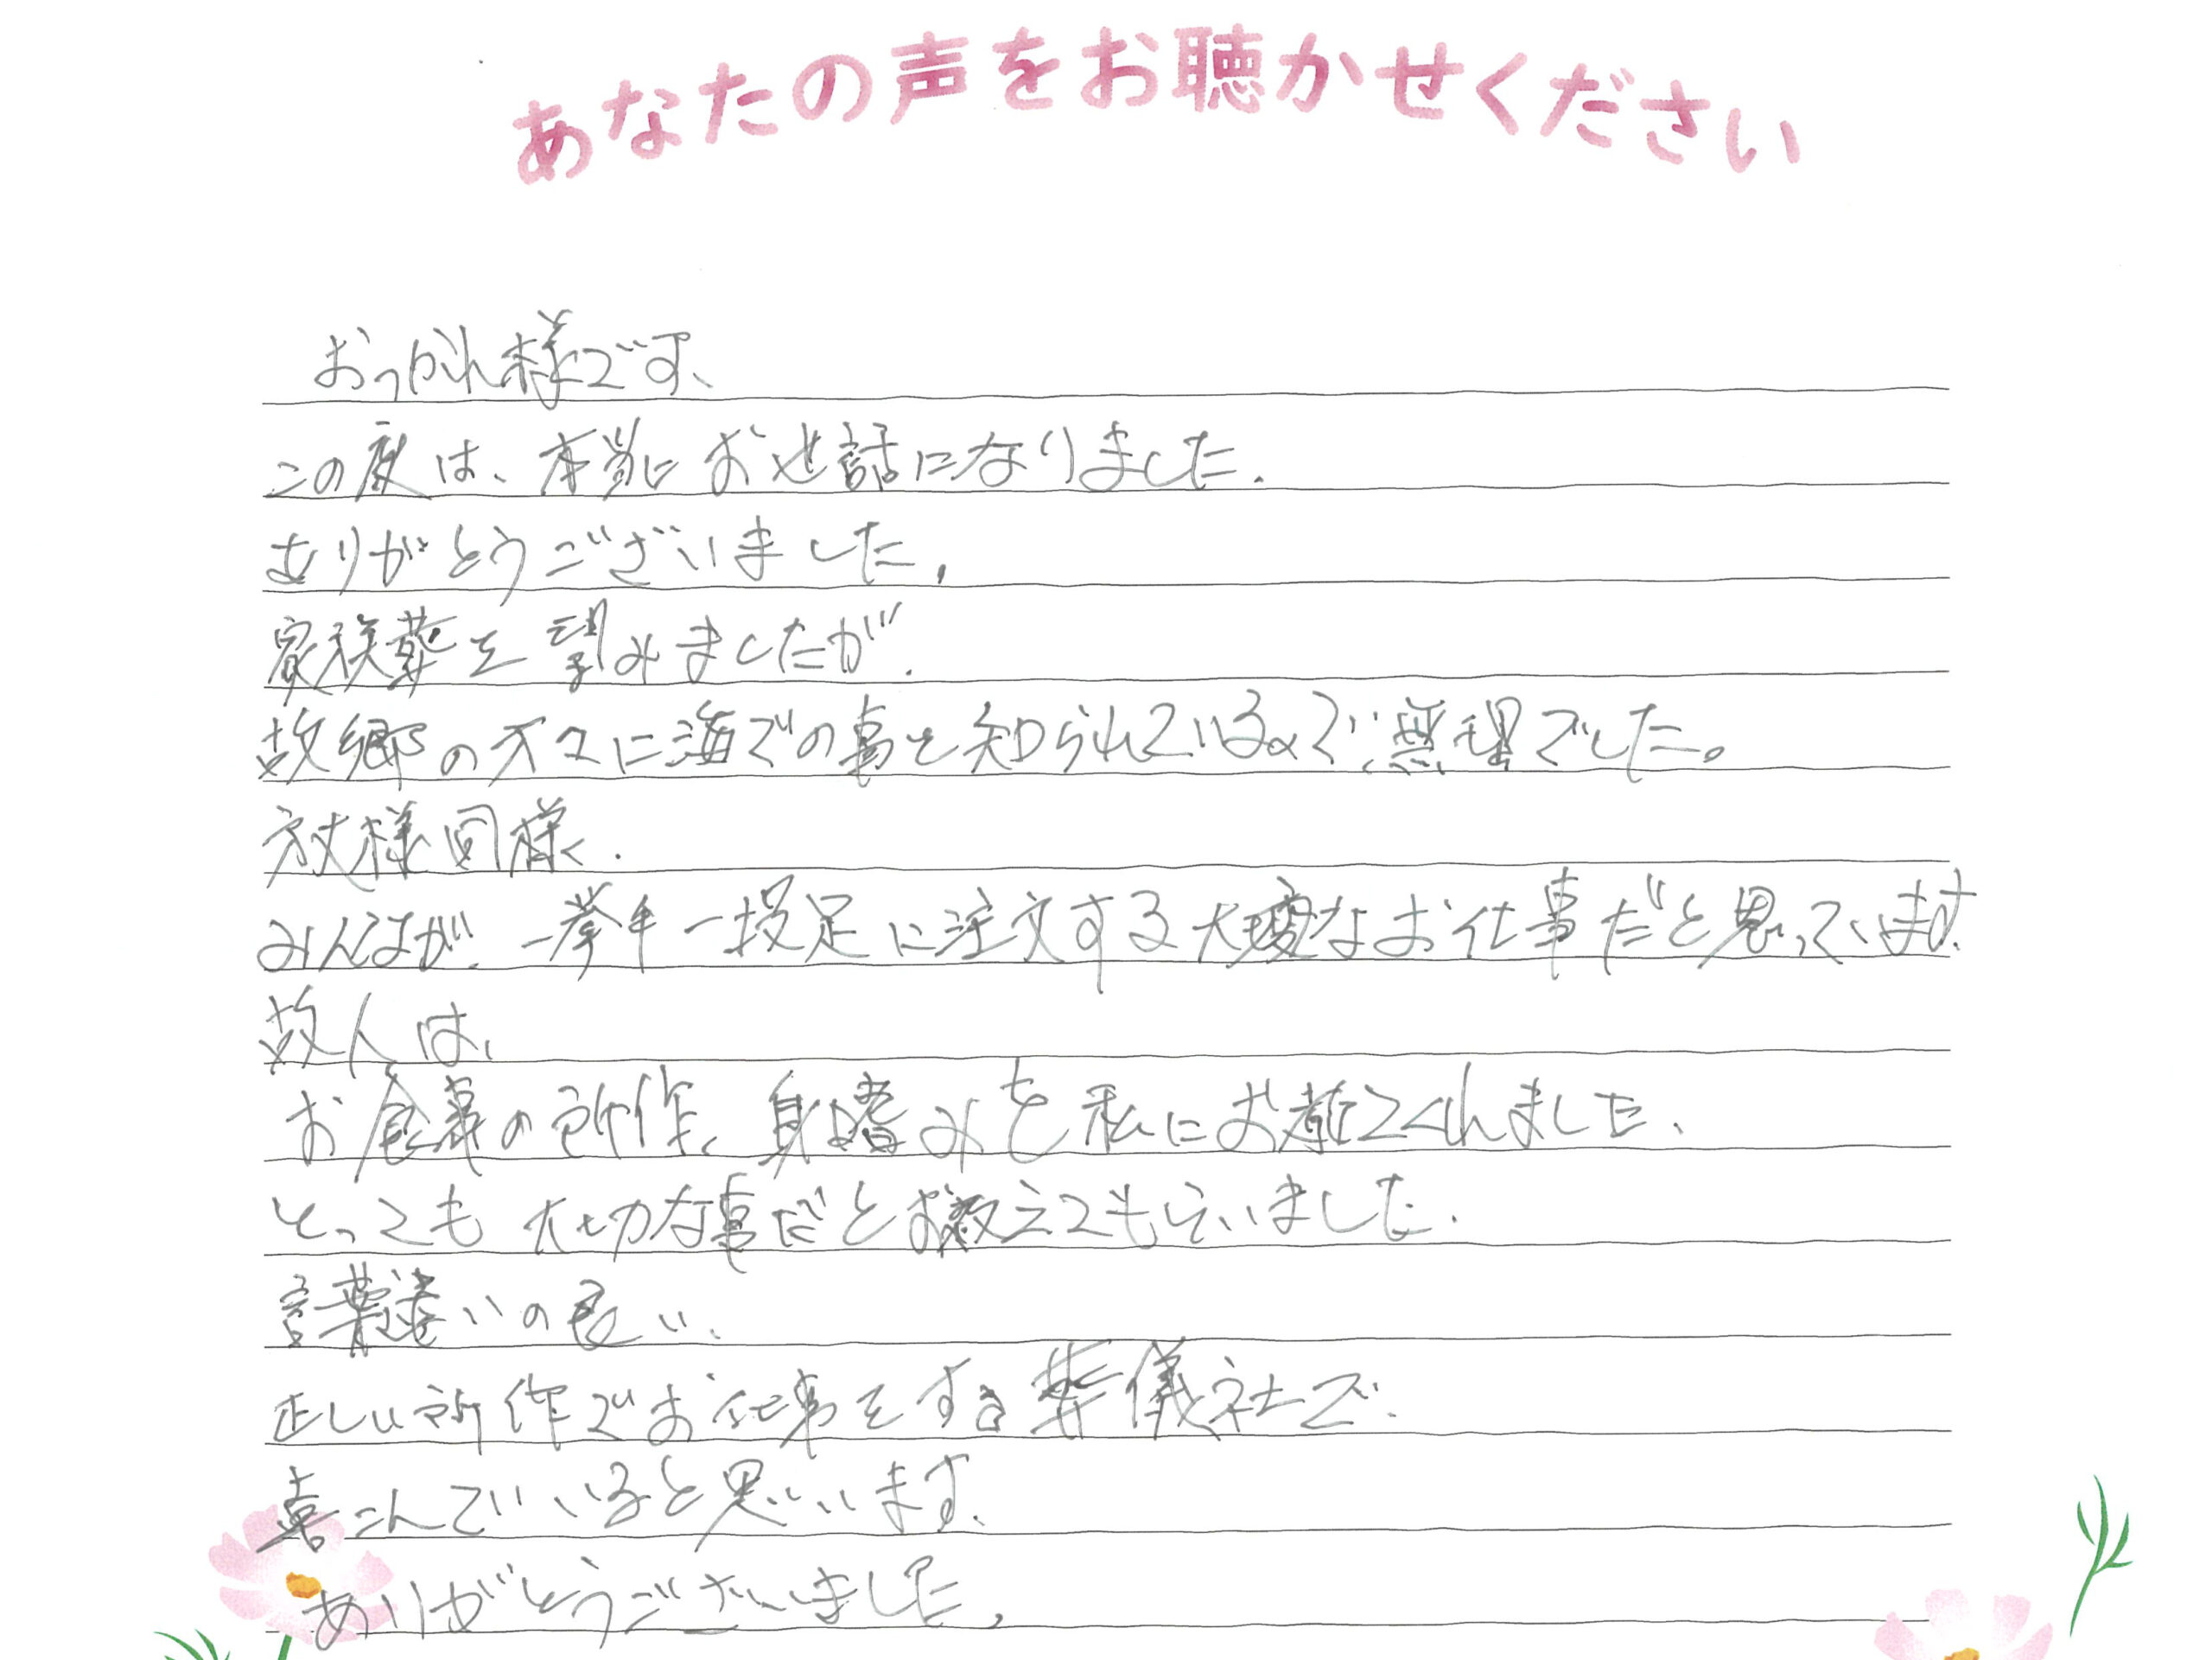 あなたの声をお聴かせください
おつかれ様です、
この度は、本当にお世話になりました.
ありがとうございました,
家族葬を望みましたが.
故郷の方々に海での事を知られているので、無理でした。
同様.
みんなが、一挙手一投足に注文する大変なお仕事だと思っています.
故人は、
お食事の所作、身嗜みを私にお教えてくれました、
とっても大切な事だとお教えてもらいました.
言葉遣いの良い、
正しい所作でお仕事をする葬儀社で.
喜こんでいると思います.
ありがとうございました,